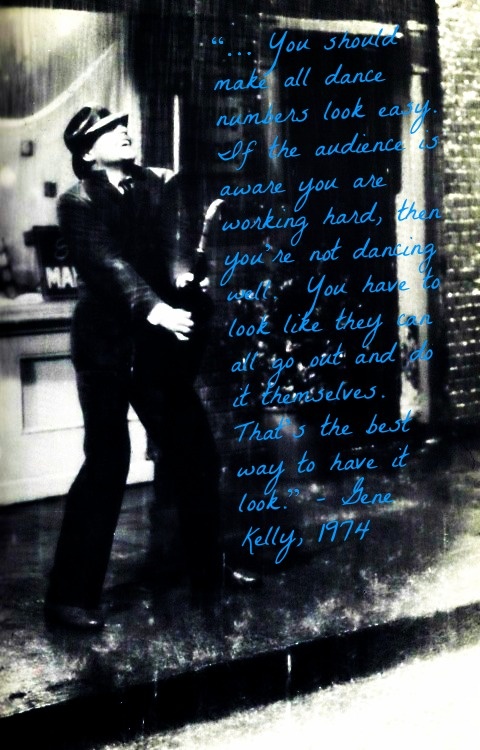 “... You should
make all dance
numbers look easy.
If the audience is
aware you are
working hard, then
you're not dancing
well. You have to
look like they can
all go out and do
it themselves.
That's the best
way to have it
look.” - Gene
Kelly, 1974
MA